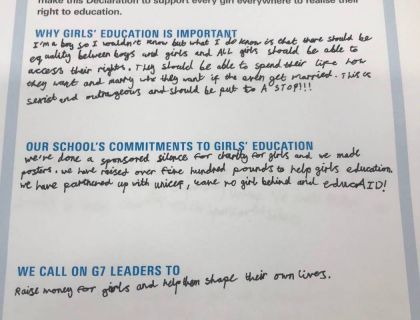 make this Declaration to support every girl everywhere to realise their
right to education.
WHY GIRLS' EDUCATION IS IMPORTANT
I'm a boy so I wouldn't know but what I do know is that there should be
equality between boys and girls and ALL girls should be able to
access their rights. They should be able to spend their life how
they want and marry who they want if the even get married. This is
sexist and outrageous and should be put to A STOP!!!
OUR SCHOOL'S COMMITMENTS TO GIRLS' EDUCATION
we've done a sponsored silence for charity for girls and we made
posters. we have raised over five hundred pounds to help girls education.
we have partnered up with unicef, leave no girl behind and educAID!
WE CALL ON G7 LEADERS TO
Raise money for girls and help them shape their own lives.